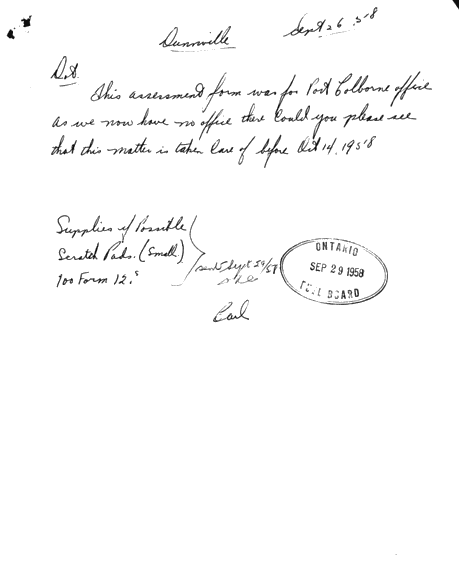 Dunnville
Sept 26 58
Dot.
This assessment form was for Port Colborne office
as we now have no office there Could you please see
that this matter is taken Care of before Oct 14, 1958
Supplies if Possible
Scratch Pads. (Small)
100 Form 12.s
sent Sept 29/58
Carl
ONTARIO
SEP 29 1958
FUEL BOARD